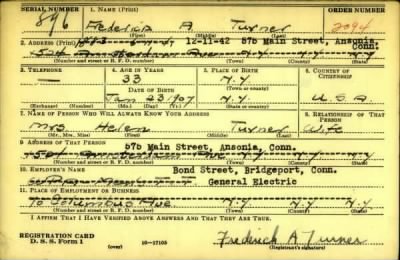 SERIAL NUMBER 1. NAME (Print) ORDER NUMBER
896 Frederick A Turner 2094
(First) (Middle) (Last)
12-11-42 87b Main Street, Ansonia, Conn.
2. ADDRESS (Print)
524 Amsterdam Ave N.Y N.Y
(Number and street or R. F. D. number) (Town) (County) (State)
3. TELEPHONE 4. AGE IN YEARS 5. PLACE OF BIRTH 6. COUNTRY OF CITIZENSHIP
33 N.Y
DATE OF BIRTH (Town or county)
Jan 23 1907 N.Y U.S.A
(Exchange) (Number) (Mo.) (Day) (Yr.) (State or country)
7. NAME OF PERSON WHO WILL ALWAYS KNOW YOUR ADDRESS 8. RELATIONSHIP OF THAT PERSON
Mrs Helen Turner Wife
(Mr., Mrs., Miss) (First) (Middle) (Last)
9. ADDRESS OF THAT PERSON
67b Main Street, Ansonia, Conn.
Amsterdam Ave N.Y
(Number and street or R. F. D. number) (Town) (County) (State)
10. EMPLOYER'S NAME Bond Street, Bridgeport, Conn.
General Electric
11. PLACE OF EMPLOYMENT OR BUSINESS
10 Columbus Ave N.Y N.Y
(Number and street or R. F. D. number) (Town) (County) (State)
I AFFIRM THAT I HAVE VERIFIED ABOVE ANSWERS AND THAT THEY ARE TRUE.
REGISTRATION CARD
D. S. S. Form 1 (over) 16-17105 Frederick A Turner
(Registrant's signature)